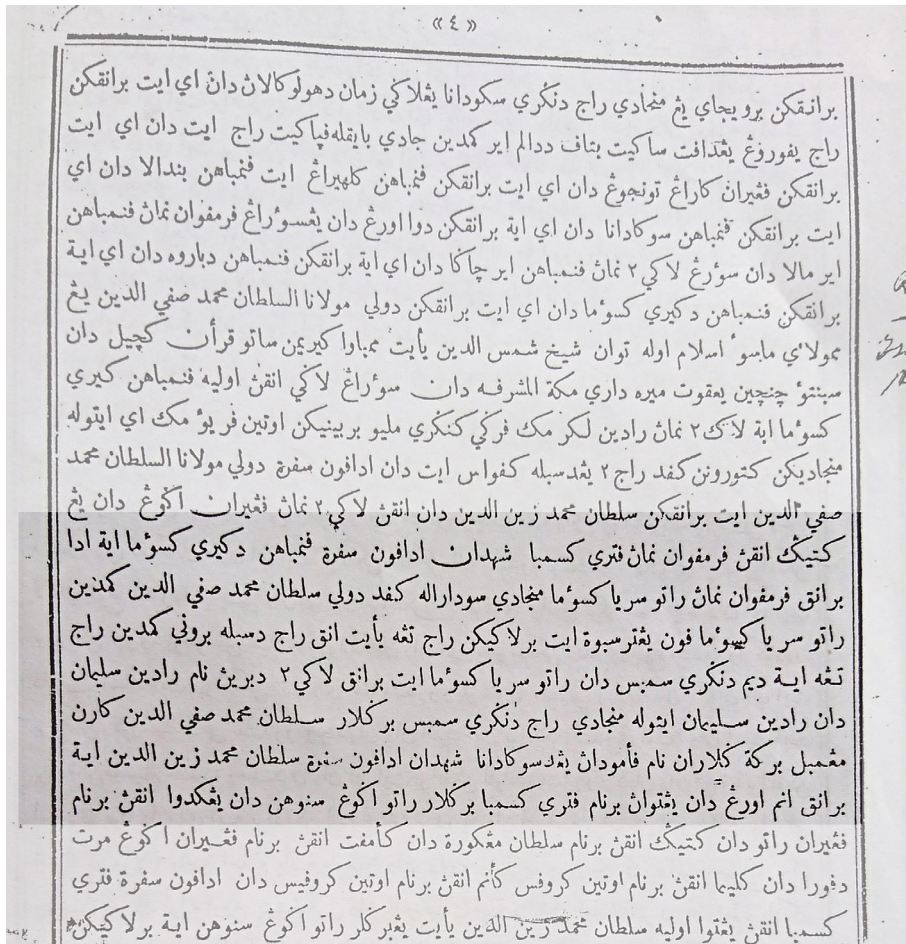 «٤»
برانقکن برويجاي يڠ منجادي راج دنکري سکودانا يڠلاکي زمان دهولو کالان دان اي ايت برانقکن
راج يڠدافت ساکيت بتاف ددالم اير کمدين جادي بايقله فپاکيت راج ايت دان اي ايت
برانقکن فڠيران کاراڠ تونجوڠ دان اي ايت برانقکن فنمباهن کلهيراڠ ايت فنمباهن بندالا دان اي
ايت برانقکن فنمباهن سوکادانا دان اي اية برانقکن دوا اورڠ دان يڠسوٴراڠ فرمفوان نماڽ فنمباهن
اير مالا دان سوٴرڠ لاکي٢ نماڽ فنمباهن اير چاڬا دان اي اية برانقکن فنمباهن دباروه دان اي اية
برانقکن فنمباهن دکيري کسوٴما دان اي ايت برانقکن دولي مولانا السلطان محمد صفي الدين يڠ
ممولاٴي ماسوٴ اسلام اوله توان شيخ شمس الدين يأيت ممباوا کيريمن ساتو قرأن کچيل دان
سبنتوٴ چنچين يعقوت ميره داري مکة المشرفه دان سوٴراڠ لاکي انقڽ اوليه فنمباهن کيري
کسوٴما اية لاک٢ نماڽ رادين لکر مک فرکي کنکري مليو بربينيکن اوتين فريوٴ مک اي ايتوله
منجاديکن کتورونن کفد راج٢ يڠدسبله کفواس ايت دان ادافون سفرة دولي مولانا السلطان محمد
صفي الدين ايت برانقکن سلطان محمد زين الدين دان انقڽ لاکي٢ نماڽ فڠيران اکوڠ دان يڠ
کتيک انقڽ فرمفوان نماڽ فتري کسمبا شهدان ادافون سفرة فنمباهن دکيري کسوٴما اية ادا
برانق فرمفوان نماڽ راتو سريا کسوٴما منجادي سوداراله کفد دولي سلطان محمد صفي الدين کمدين
راتو سريا کسوٴما فون يڠترسبوة ايت برلاکيکن راج تڠه يأيت انق راج دسبله بروني کمدين راج
تڠه اية ديم دنکري سمبس دان راتو سريا کسوٴما ايت برانق لاکي٢ دبرين نام رادين سليمان
دان رادين سليمان ايتوله منجادي راج دنکري سمبس برکلار سلطان محمد صفي الدين کارن
مڠمبل برکة کلاران نام فأموداڽ يڠدسوکادانا شهدان ادافون سفرة سلطان محمد زين الدين اية
برانق انم اورڠ دان يڠتواڽ برنام فتري کسمبا برکلار راتو اکوڠ سنوهن دان يڠکدوا انقڽ برنام
فڠيران راتو دان کتيک انقڽ برنام سلطان مڠکورة دان کأمفت انقڽ برنام فڠيران اکوڠ مرت
دفورا دان کليما انقڽ برنام اوتين کروفس کأنم انقڽ برنام اوتين کروفيس دان ادافون سفرة فتري
کسمبا انقڽ يڠتوا اوليه سلطان محمد زين الدين يأيت يڠبرکلر راتو اکوڠ سنوهن اية برلاکيکن